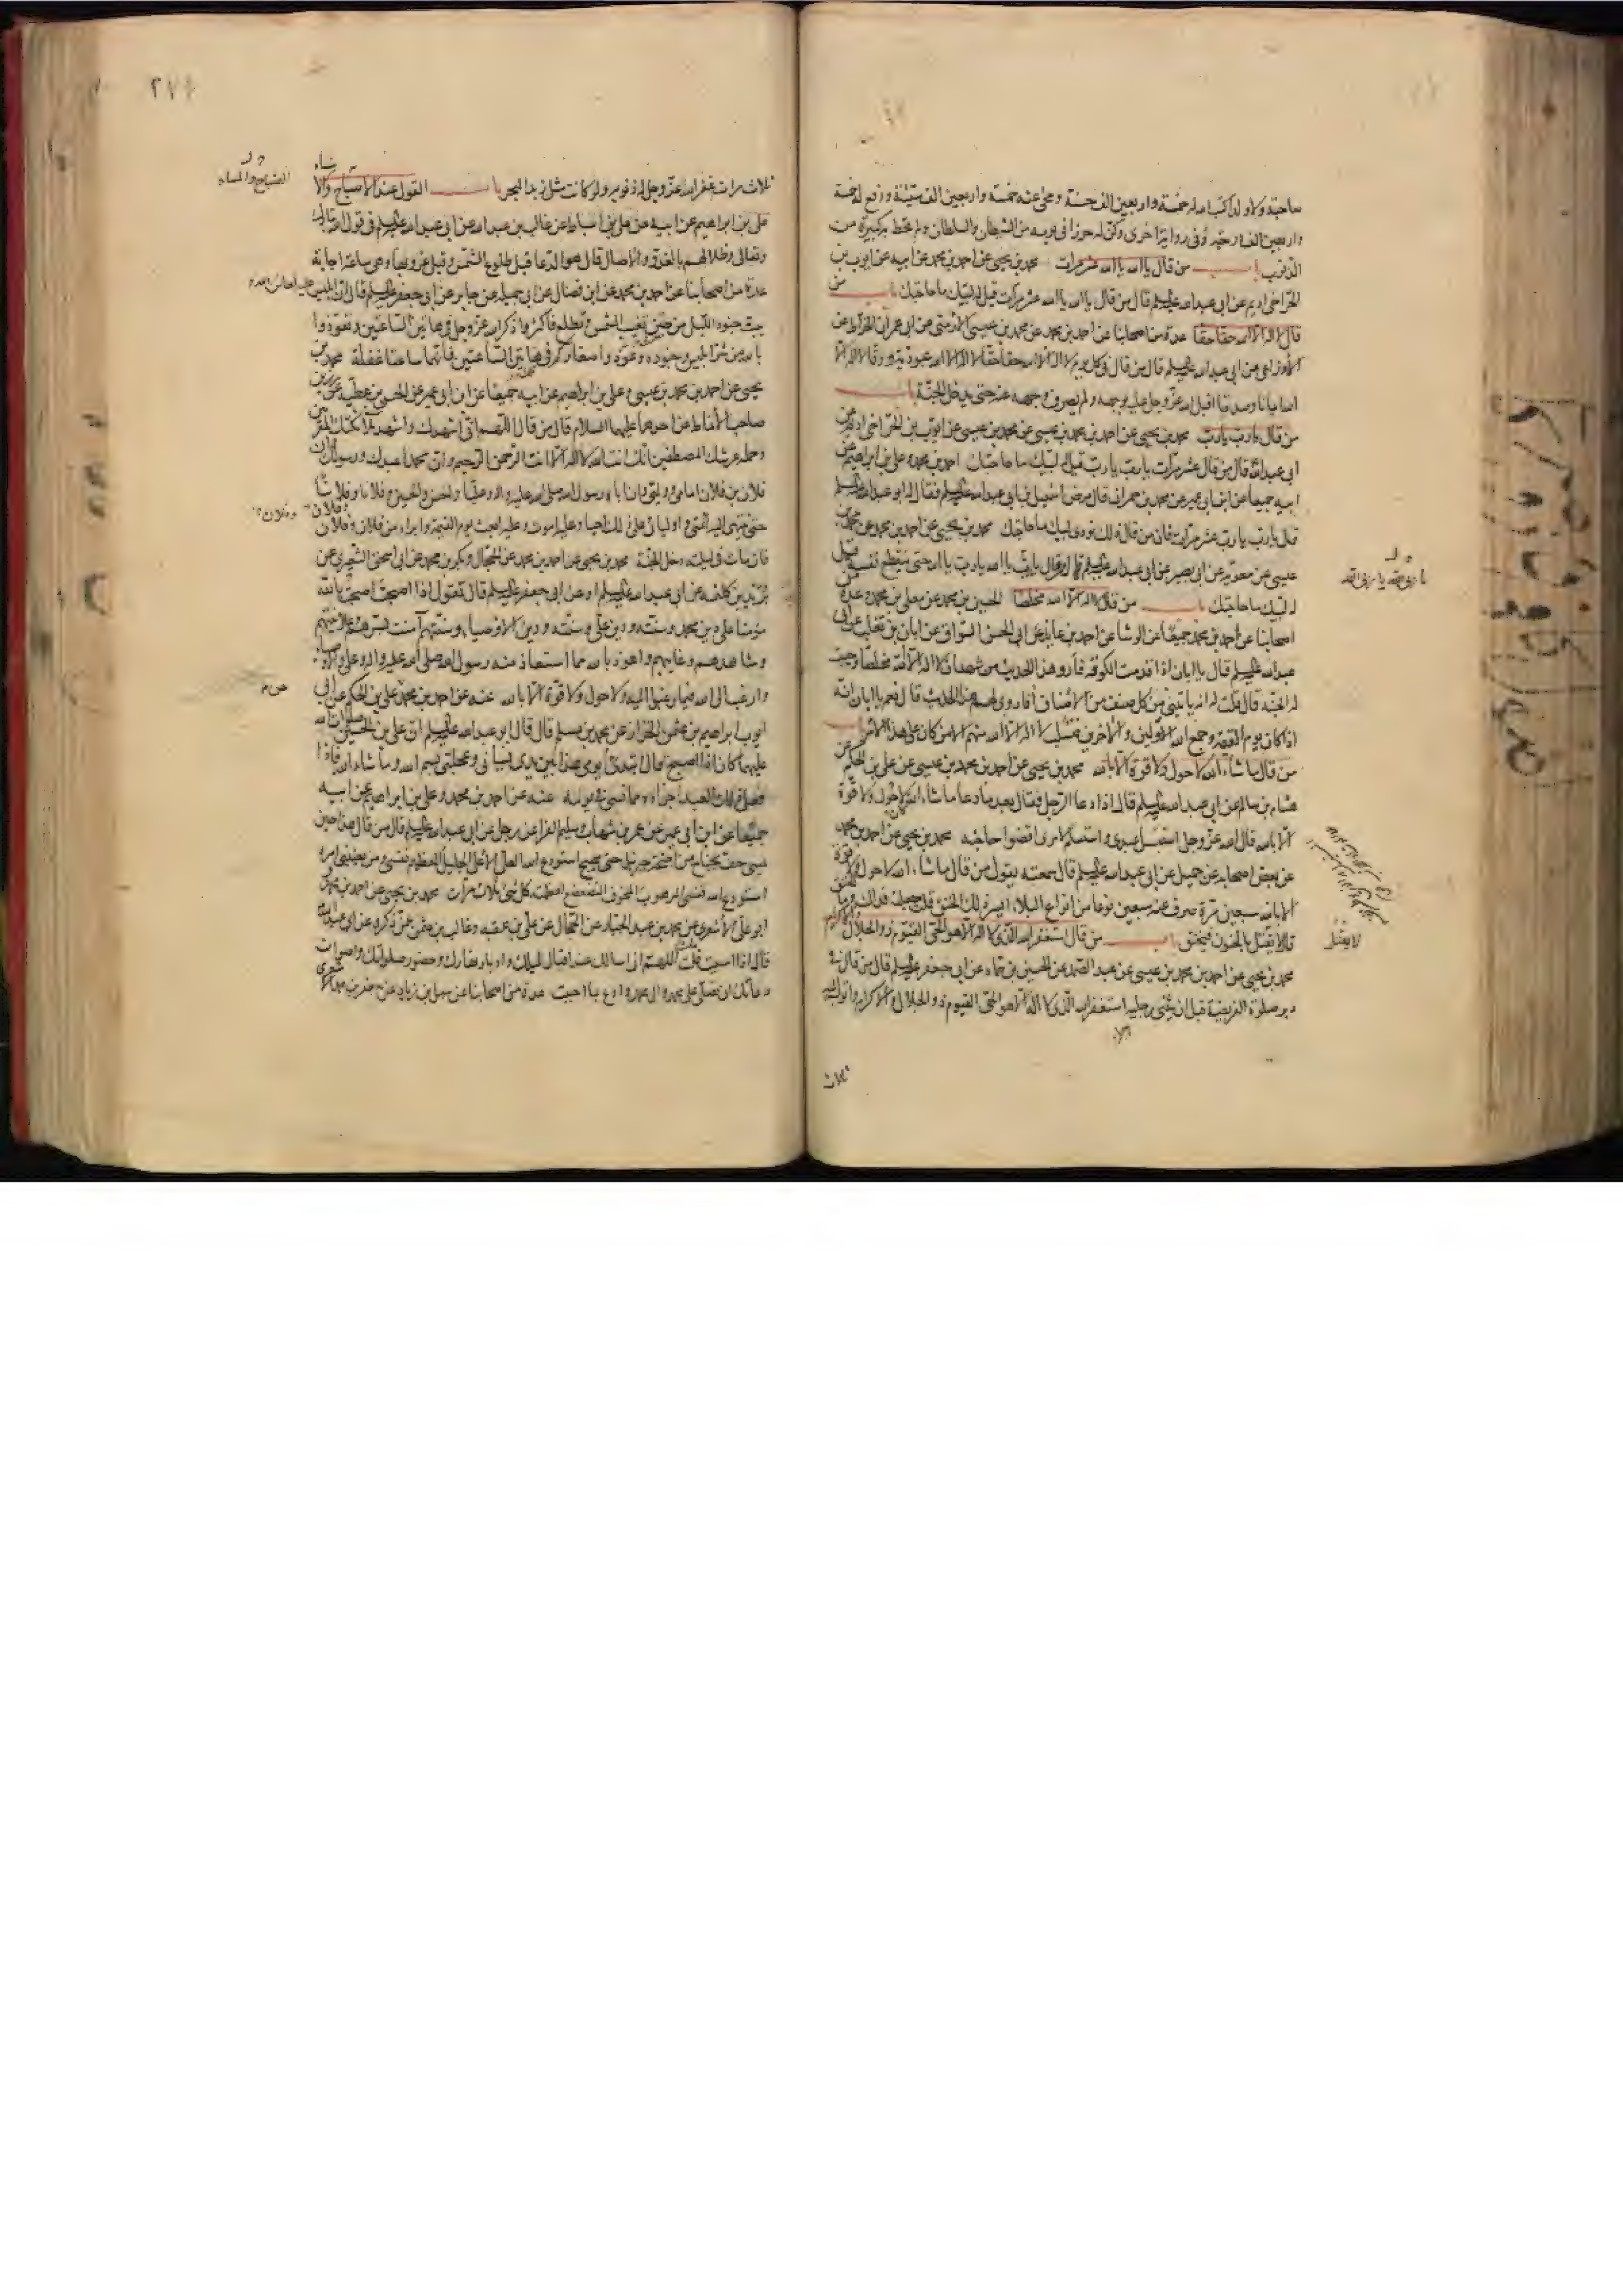 صاحبة ولا ولدا كتب الله له خمسة واربعين الف حسنة ومحى عنه خمسة واربعين الف سيئة ورفع له خمسة
واربعين الف درجة وفى رواية اخرى وكن له حرزا فى يومه من الشيطان والسلطان ولم تحط به كبيرة من
الذنوب باب من قال يا الله يا الله عشر مرات محمد بن يحيى عن احمد بن محمد عن ابيه عن ايوب بن
الحر اخى اديم عن ابى عبد الله عليه السلم قال من قال يا الله يا الله عشر مرات قيل له لبيك ما حاجتك باب من
قال لا اله الا الله حقا حقا عدة من اصحابنا عن احمد بن محمد عن محمد بن عيسى الارمنى عن ابى عمران الخراط عن
الاوزاعى عن ابى عبد الله عليه السلم قال من قال فى كل يوم لا اله الا الله حقا حقا لا اله الا الله عبودية ورقا لا اله الا
الله ايمانا وصدقا اقبل الله عز وجل عليه بوجهه ولم يصرف وجهه عنه حتى يدخل الجنة باب
من قال يا رب يا رب محمد بن يحيى عن احمد بن محمد بن عيسى عن محمد بن عيسى عن ايوب بن الحر اخى اديم عن
ابى عبد الله قال من قال عشر مرات يا رب يا رب قيل له لبيك ما حاجتك احمد بن محمد وعلى بن ابراهيم عن
ابيه جميعا عن ابن ابى عمير عن محمد بن حمران قال مرض اسمعيل بن ابى عبد الله عليه السلم فقال له ابو عبد الله عليه السلم
قل يا رب يا رب عشر مرات فان من قال ذلك نودى لبيك ما حاجتك محمد بن يحيى عن احمد بن محمد عن محمد بن
عيسى عن معوية عن ابى بصير عن ابى عبد الله عليه السلم قال من قال يا رب يا الله يا رب يا الله حتى ينقطع نفسه قيل
له لبيك ما حاجتك باب من قال لا اله الا الله مخلصا الحسين بن محمد عن معلى بن محمد وعدة من
اصحابنا عن احمد بن محمد جميعا عن الوشا عن احمد بن عايذ عن ابى الحسن السواق عن ابان بن تغلب عن ابى
عبد الله عليه السلم قال يا ابان اذا قدمت الكوفة فارو هذا الحديث من شهد ان لا اله الا الله مخلصا وجبت
له الجنة قال قلت له انه ياتينى من كل صنف من الاصناف أفاروى لهم هذا الحديث قال نعم يا ابان انه
اذا كان يوم القيمة وجمع الله الاولين والآخرين فتسلب لا اله الا الله منهم الا من كان على هذا الامر باب
من قال ما شاء الله لا حول ولا قوة الا بالله محمد بن يحيى عن احمد بن محمد بن عيسى عن على بن الحكم عن
هشام بن سالم عن ابى عبد الله عليه السلم قال اذا دعا الرجل فقال بعد ما دعا ما شاء الله لا حول ولا قوة
الا بالله قال الله عز وجل استبسل عبدى واستسلم لامرى اقضوا حاجته محمد بن يحيى عن احمد بن محمد
عن بعض اصحابه عن جميل عن ابى عبد الله عليه السلم قال سمعته يقول من قال ما شاء الله لا حول ولا قوة
الا بالله سبعين مرة صرف عنه سبعين نوعا من انواع البلاء ايسر ذلك الخنق قلت جعلت فداك وما الخنق
قال لا يقتل بالجنون فيخنق باب من قال استغفر الله الذى لا اله الا هو الحى القيوم ذو الجلال والاكرام
محمد بن يحيى عن احمد بن محمد بن عيسى عن عبد الصمد عن الحسين بن حماد عن ابى جعفر عليه السلم قال من قال فى
دبر صلوة الفريضة قبل ان يثنى رجليه استغفر الله الذى لا اله الا هو الحى القيوم ذو الجلال والاكرام واتوب اليه
ثلاث
يا ربى الله يا ربى الله
لا يعتل
٢٧٤
ثلاث مرات غفر الله عز وجل له ذنوبه ولو كانت مثل زبد البحر باب القول عند الاصباح والامساء
على بن ابراهيم عن ابيه عن على بن اسباط عن غالب بن عبد الله عن ابى عبد الله عليه السلم فى قول الله تبارك
وتعالى وظلالهم بالغدو والآصال قال هو الدعا قبل طلوع الشمس وقبل غروبها وهى ساعة اجابة
عدة من اصحابنا عن احمد بن محمد عن ابن فضال عن ابى جميلة عن جابر عن ابى جعفر عليه السلم قال ان ابليس عليه لعائن الله
يبث جنود الليل من حين تغيب الشمس وتطلع فاكثروا ذكر الله عز وجل فى هاتين الساعتين وتعوذوا
بالله من شر ابليس وجنوده وعوذوا صغاركم فى هاتين الساعتين فانهما ساعتا غفلة محمد بن
يحيى عن احمد بن محمد بن عيسى وعلى بن ابراهيم عن ابيه جميعا عن ابن ابى عمير عن الحسن بن عطية عن رزين
صاحب الانماط عن احدهما عليهما السلام قال من قال اللهم انى اشهدك واشهد ملائكتك المقربين
وحملة عرشك المصطفين انك انت الله لا اله الا انت الرحمن الرحيم وان محمدا عبدك ورسولك وان
فلان بن فلان امامى وولى وان اباه رسول الله صلى الله عليه واله وعليا والحسن والحسين وفلانا وفلانا
حتى ينتهى اليه ائمتى واوليائى على ذلك احيا وعليه اموت وعليه ابعث يوم القيمة وابراء من فلان وفلان وفلان
فان مات فى ليلته دخل الجنة محمد بن يحيى عن احمد بن محمد عن الحجال وبكر بن محمد عن ابى اسحق الشعيرى عن
يزيد بن كلثمة عن ابى عبد الله عليه السلم او عن ابى جعفر عليه السلم قال تقول اذا اصبحت اصبحت بالله
مؤمنا على دين محمد وسنته ودين على وسنته ودين الاوصياء وسنتهم آمنت بسرهم وعلانيتهم
وشاهدهم وغايبهم واعوذ بالله مما استعاذ منه رسول الله صلى الله عليه واله وعلى والاوصياء
وارغب الى الله فيما رغبوا اليه ولا حول ولا قوة الا بالله عنه عن احمد بن محمد عن على بن الحكم عن ابى
ايوب ابراهيم بن عثمن الخزاز عن محمد بن مسلم قال قال ابو عبد الله عليه السلم ان على بن الحسين صلوات الله
عليهما كان اذا اصبح قال ابتدئ يومى هذا بين يدى نسيانى وعجلتى بسم الله وما شاء الله فاذا
فعل ذلك العبد اجزاه مما نسى فى يومه عنه عن احمد بن محمد وعلى بن ابراهيم عن ابيه
جميعا عن ابن ابى عمير عن عمر بن شهاب وسليم الفرا عن رجل عن ابى عبد الله عليه السلم قال من قال هذا حين
يمسى حف بجناح من اجنحة جبرئيل حتى يصبح استودع الله العلى الاعلى الجليل العظيم نفسى ومن يعنينى امره
استودع الله نفسى المرهوب المخوف المتضعضع لعظمته كل شئ ثلاث مرات محمد بن يحيى عن احمد بن محمد
ابو على الاشعرى عن محمد بن عبد الجبار عن الحجال عن على بن عقبة وغالب بن عثمن عمن ذكره عن ابى عبد الله
قال اذا امسيت قلت اللهم انى اسالك عند اقبال ليلك وادبار نهارك وحضور صلواتك واصوات
دعائك ان تصلى على محمد وال محمد وادع بما احببت عدة من اصحابنا عن سهل بن زياد عن جعفر بن محمد الاشعرى
الصباح والمساء
وفلان